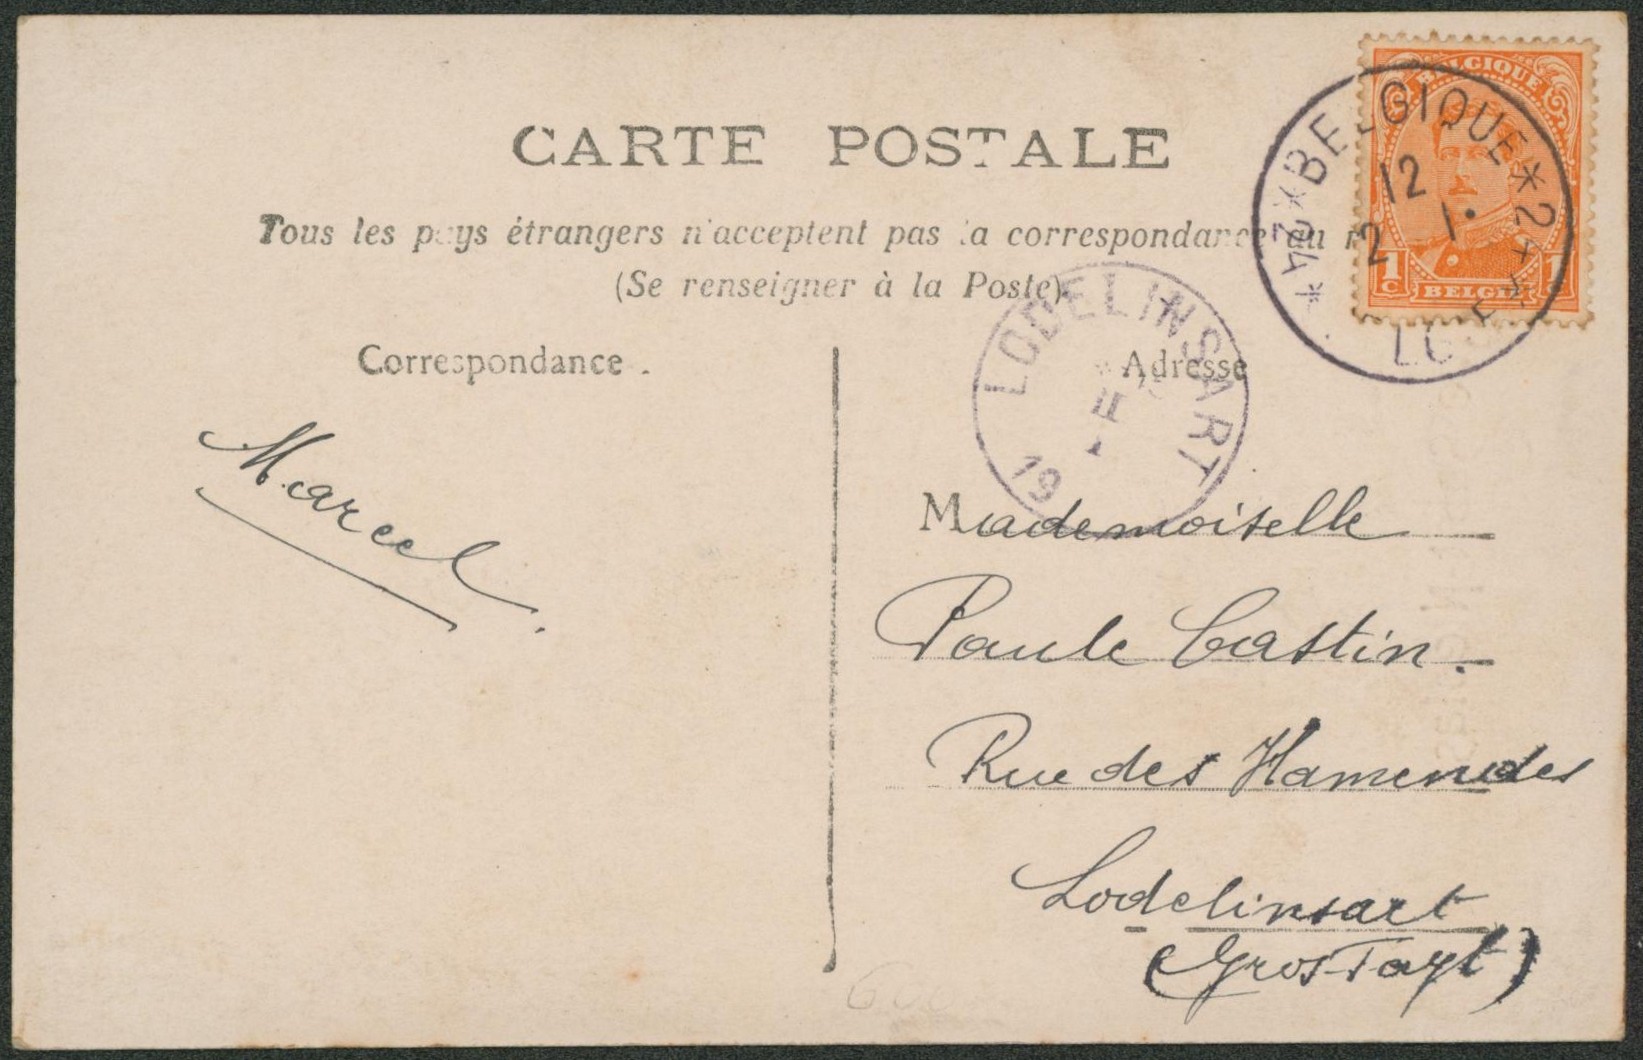 BELGIQUE
1 C BELGIË 1 C
* BELGIQUE * 2
12
2 1.
24 *
CARTE POSTALE
Tous les pays étrangers n'acceptent pas la correspondance au
(Se renseigner à la Poste)
LODELINSART
19
Correspondance.
Adresse
Marcel.
Mademoiselle
Paule Castin.
Rue des Hamendes
Lodelinsart
(Gros-Fayt)